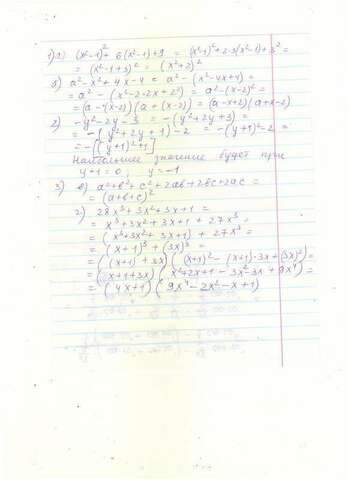 1) а) (x²-1)² + 6(x²-1)+9 = (x²-1)²+2·3(x²-1)+3² =
= (x²-1+3)² = (x²+2)²
в) a²-x²+4x-4 = a²-(x²-4x+4) =
= a²-(x²-2·2x+2²) = a²-(x-2)² =
= (a-(x-2))(a+(x-2)) = (a-x+2)(a+x-2)
2) -y²-2y-3 = -(y²+2y+3) =
= -(y²+2y+1)-2 = -(y+1)²-2 =
= -[(y+1)²+1]
Наибольшее значение будет при
y+1=0, y=-1
3) в) a²+b²+c²+2ab+2bc+2ac =
= (a+b+c)²
2) 28x³+3x²+3x+1 =
= x³+3x²+3x+1+27x³ =
= (x³+3x²+3x+1)+27x³ =
= (x+1)³+(3x)³ =
= ((x+1)+3x)((x+1)²-(x+1)·3x+(3x)²) =
= (x+1+3x)(x²+2x+1-3x²-3x+9x⁴) =
= (4x+1)(9x⁴-2x²-x+1)